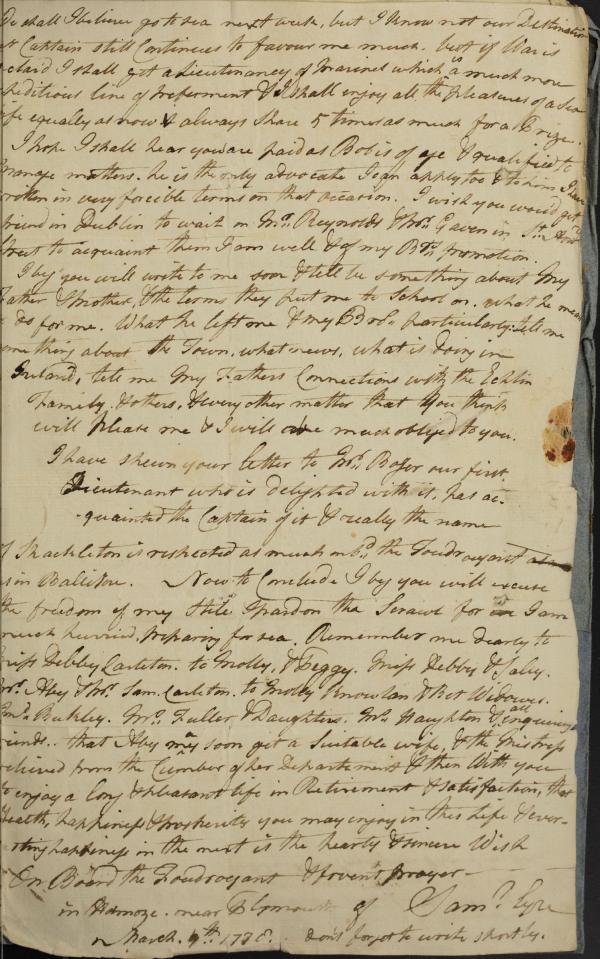 We shall I believe go to sea next week, but I know not our Destination
Captain still Continues to favour me much. but if War is
I shall get a Lieutenancy of Marines which is a much more
line of preferment & I shall enjoy all the pleasures of a Sea
life equally as now & always share 5 times as much for a Prize.
I hope I shall hear you are paid as Bob is of age & qualified to
arrange matters. he is the only advocate I can apply too & to him I have
written in very forcible terms on that occasion. I wish you would get
friend in Dublin to wait on Mrs. Reynolds & Thos. Gaven in St.
Street to acquaint them I am well & of my Brs. promotion.
I beg you will write to me soon & tell be something about my
Father & Mother, & the terms they put me to School on. what he mean
do for me. What he left me & my Brs. particularly: tell me
something about the Town. what news, what is doing in
Ireland, tell me my Fathers Connections with the Echlin
Family, & others, & every other matter that you think
will please me & I will be much obliged to you.
I have shewn your letter to Mr. our first
Lieutenant who is delighted with it, has ac-
-quainted the Captain of it & really the name
of Shackleton is respected as much on bd. the Foudroyant
as in Baliton. Now to Conclude I beg you will excuse
the freedom of my Stile & pardon the Scrawl for I am
much hurried, preparing for sea. Remember me dearly to
Miss Debby Carleton. to Molly, & Peggy. Miss Debby & Sally.
Mr. Aby & Mr. Sam. Carleton. to Molly Knowlan & Bet Widows.
Buckley. Mrs. Fuller, & Daughters. Mrs. Haughton & all enquiring
friends. that Aby may soon get a Suitable wife, & the Mistress
relieved from the Cumber of her Department & then With you
to enjoy a long & pleasant life in Retirement & satisfaction, that
Health, happiness & prosperity you may enjoy in this Life & ever-
-lasting happiness in the next is the hearty & sincere Wish
On Board the Foudroyant & fervent prayer
in Hamoze. near Plymouth of Saml. Eyre
March. 9th. 1778. dont forget to write shortly.